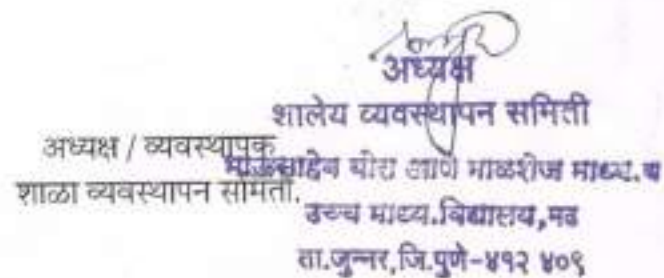 अध्यक्ष
शालेय व्यवस्थापन समिती
अध्यक्ष / व्यवस्थापक
शाळा व्यवस्थापन समिती.
भाऊसाहेब बोरा आणि माळशेज माध्य.व
उच्च माध्य.विद्यालय,मढ
ता.जुन्नर,जि.पुणे-४१२ ४०९